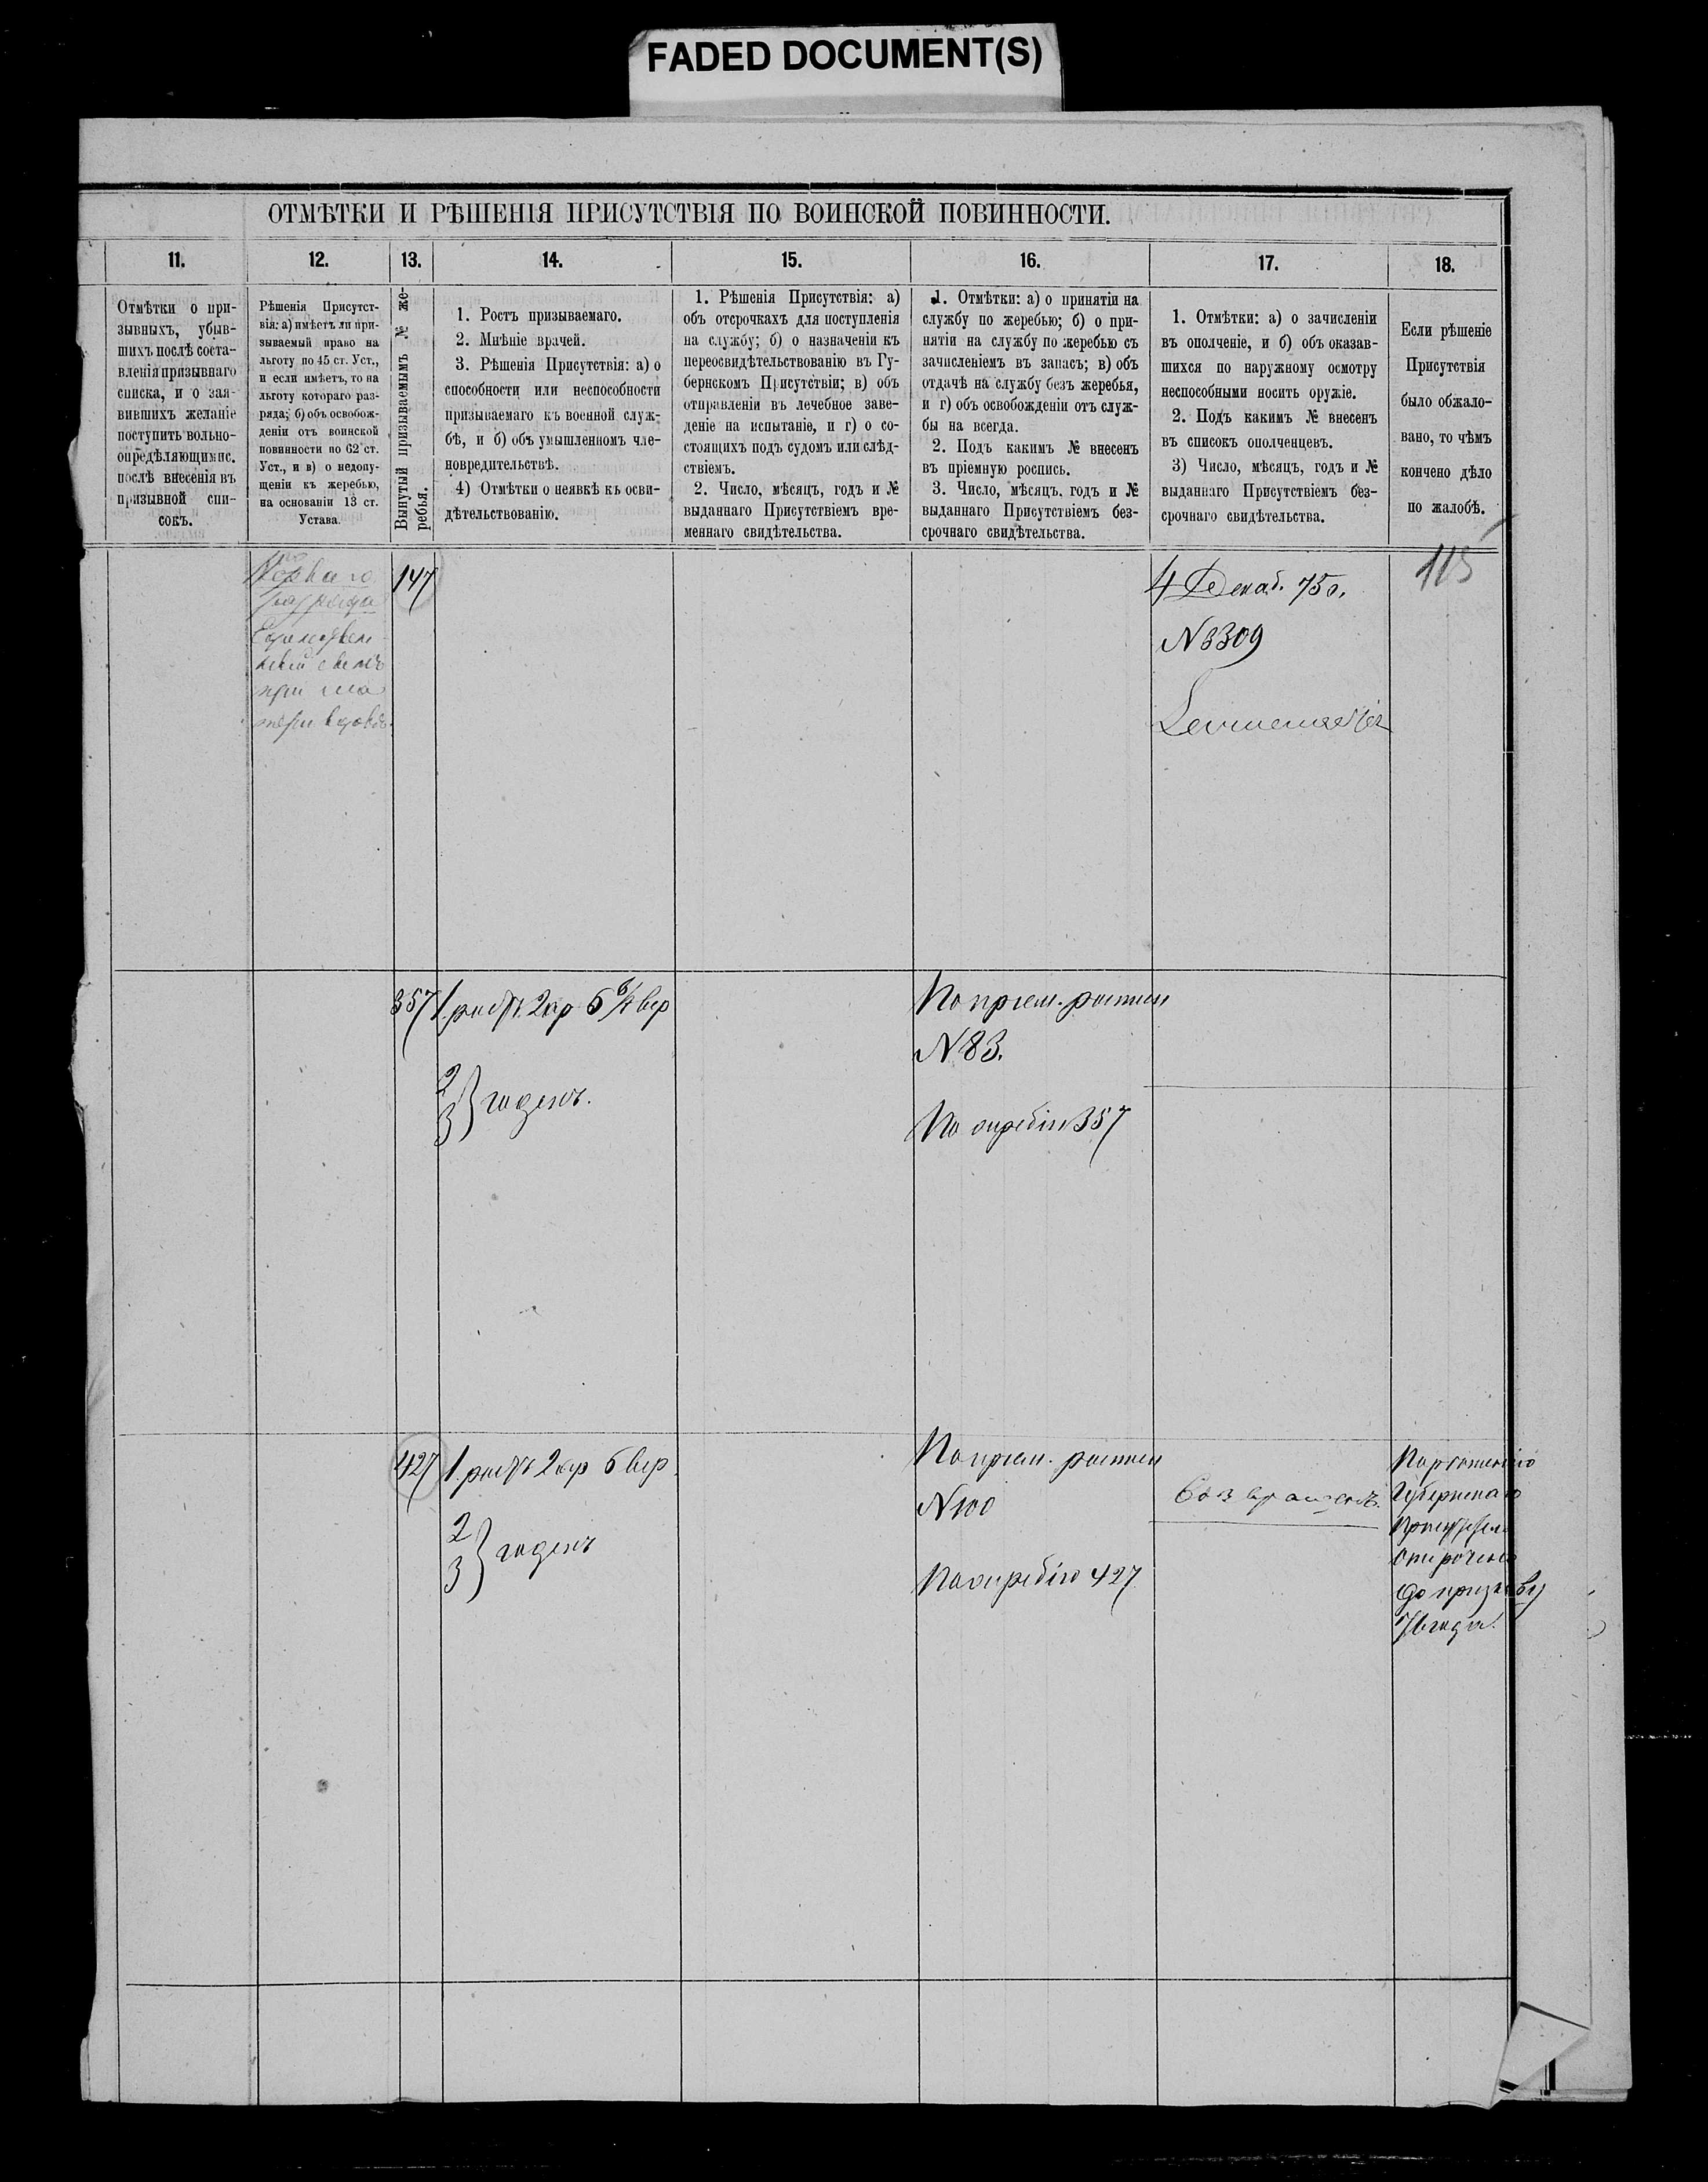 FADED DOCUMENT(S)
ОТМѢТКИ И РѢШЕНІЯ ПРИСУТСТВІЯ ПО ВОИНСКОЙ ПОВИННОСТИ.
11.
12.
13.
14.
15.
16.
17.
18.
Отмѣтки о при-
зывныхъ, убыв-
шихъ послѣ соста-
вленія призывнаго
списка, и о зая-
вившихъ желаніе
поступить вольно-
опредѣляющимис.
послѣ внесенія въ
призывной спи-
сокъ.
Рѣшенія Присутст-
вія: а) имѣетъ ли при-
зываемый право на
льготу по 45 ст. Уст.,
и если имѣетъ, то на
льготу котораго раз-
ряда; б) объ освобож-
деніи отъ воинской
повинности по 62 ст.
Уст., и в) о недопу-
щеніи къ жеребью,
на основаніи 13 ст.
Устава.
Вынутый призываемымъ № же-
ребья.
1. Ростъ призываемаго.
2. Мнѣніе врачей.
3. Рѣшенія Присутствія: а) о
способности или неспособности
призываемаго къ военной служ-
бѣ, и б) объ умышленномъ чле-
новредительствѣ.
4) Отмѣтки о неявкѣ къ осви-
дѣтельствованію.
1. Рѣшенія Присутствія: а)
объ отсрочкахъ для поступленія
на службу; б) о назначеніи къ
переосвидѣтельствованію въ Гу-
бернскомъ Присутствіи; в) объ
отправленіи въ лечебное заве-
деніе на испытаніе, и г) о со-
стоящихъ подъ судомъ или слѣд-
ствіемъ.
2. Число, мѣсяцъ, годъ и №
выданнаго Присутствіемъ вре-
меннаго свидѣтельства.
1. Отмѣтки: а) о принятіи на
службу по жеребью; б) о при-
нятіи на службу по жеребью съ
зачисленіемъ въ запасъ; в) объ
отдачѣ на службу безъ жеребья,
и г) объ освобожденіи отъ служ-
бы на всегда.
2. Подъ какимъ № внесенъ
въ пріемную роспись.
3. Число, мѣсяцъ, годъ и №
выданнаго Присутствіемъ без-
срочнаго свидѣтельства.
1. Отмѣтки: а) о зачисленіи
въ ополченіе, и б) объ оказав-
шихся по наружному осмотру
неспособными носить оружіе.
2. Подъ какимъ № внесенъ
въ списокъ ополченцевъ.
3) Число, мѣсяцъ, годъ и №
выданнаго Присутствіемъ без-
срочнаго свидѣтельства.
Если рѣшеніе
Присутствія
было обжало-
вано, то чѣмъ
кончено дѣло
по жалобѣ.
115
Перваго
разряда
Единствен-
ный сынъ
при ма
тери вдовѣ.
147
4 Декаб. 75г.
N 3309
357
1. ростъ 2 ар 5 6/4 вер
2
3 } годенъ.
По пріем. росписи
N 83.
По жребію 357
427
1. ростъ 2 ар 6 вер.
2
3 } годенъ
По пріем. росписи
N 100
По жребію 427
Возвращенъ.
Губернскаго
Присутствія
отсроченъ
до призыву
76 года.